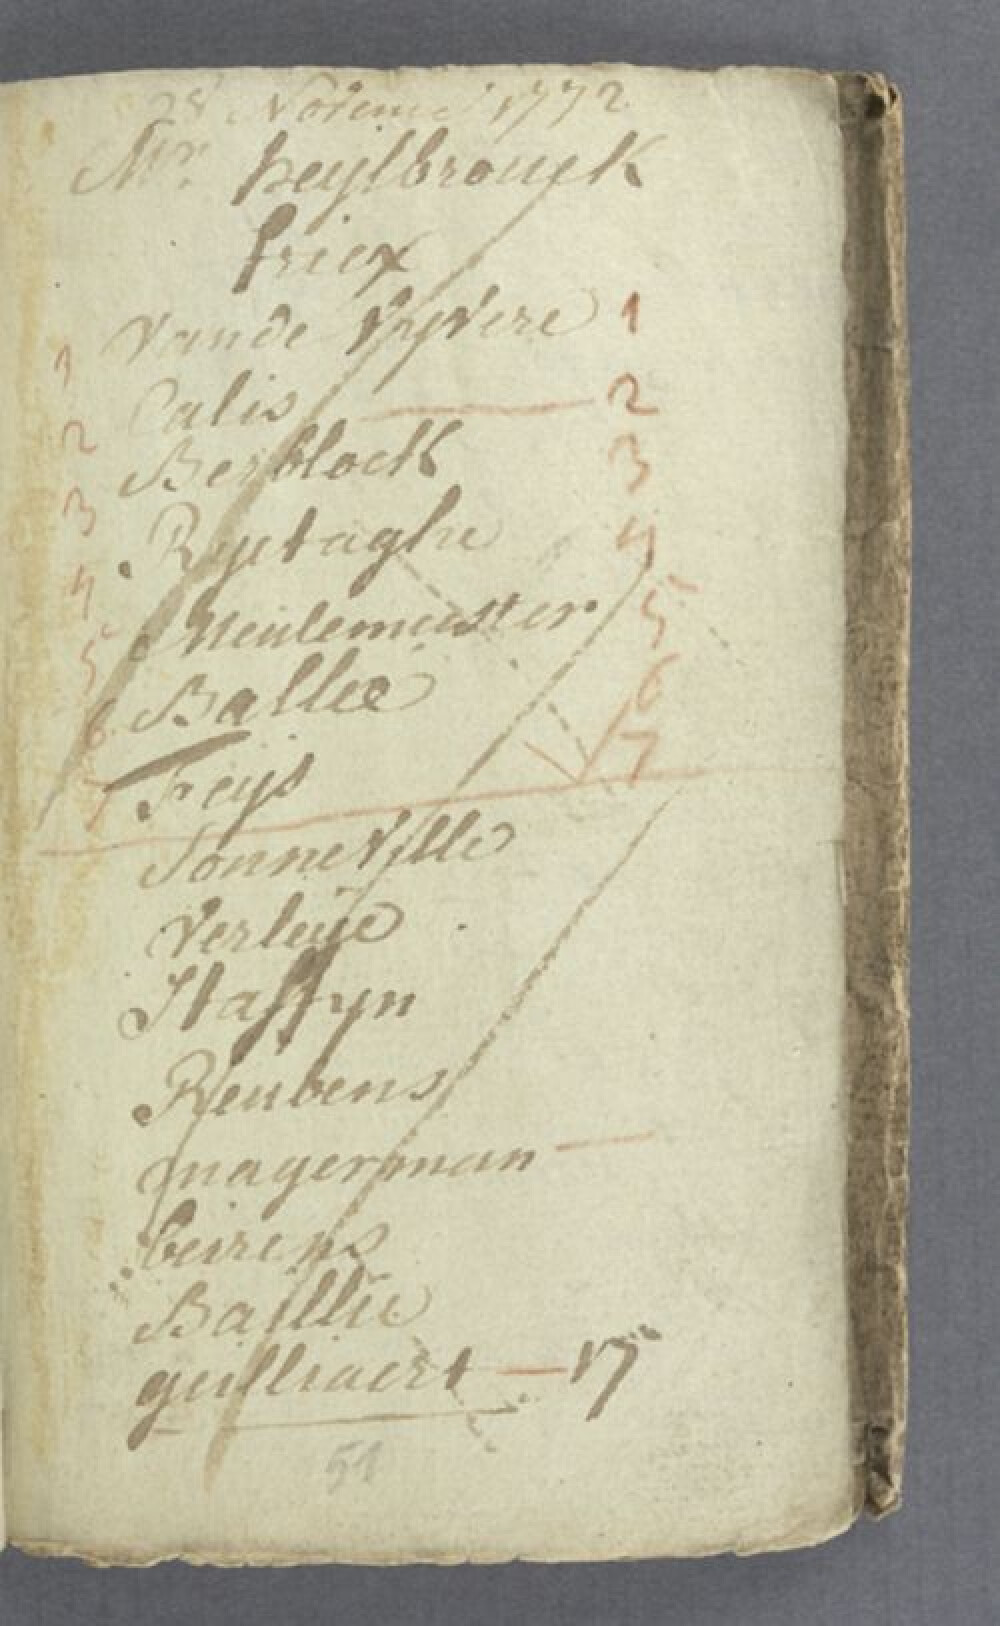 28 Novemb 1772
Mr. heylbrouck
friex
1 Vande Vyvere 1
2 Calis 2
3 Berblock 3
4 Ryetaghe 4
5 Meulemeester 5
6 Ballie 6
7 Feys 7
Sonneville
Verleye
Staffyn
Reubens
magerman
beirens
Baillie
guilliaert — 17
51